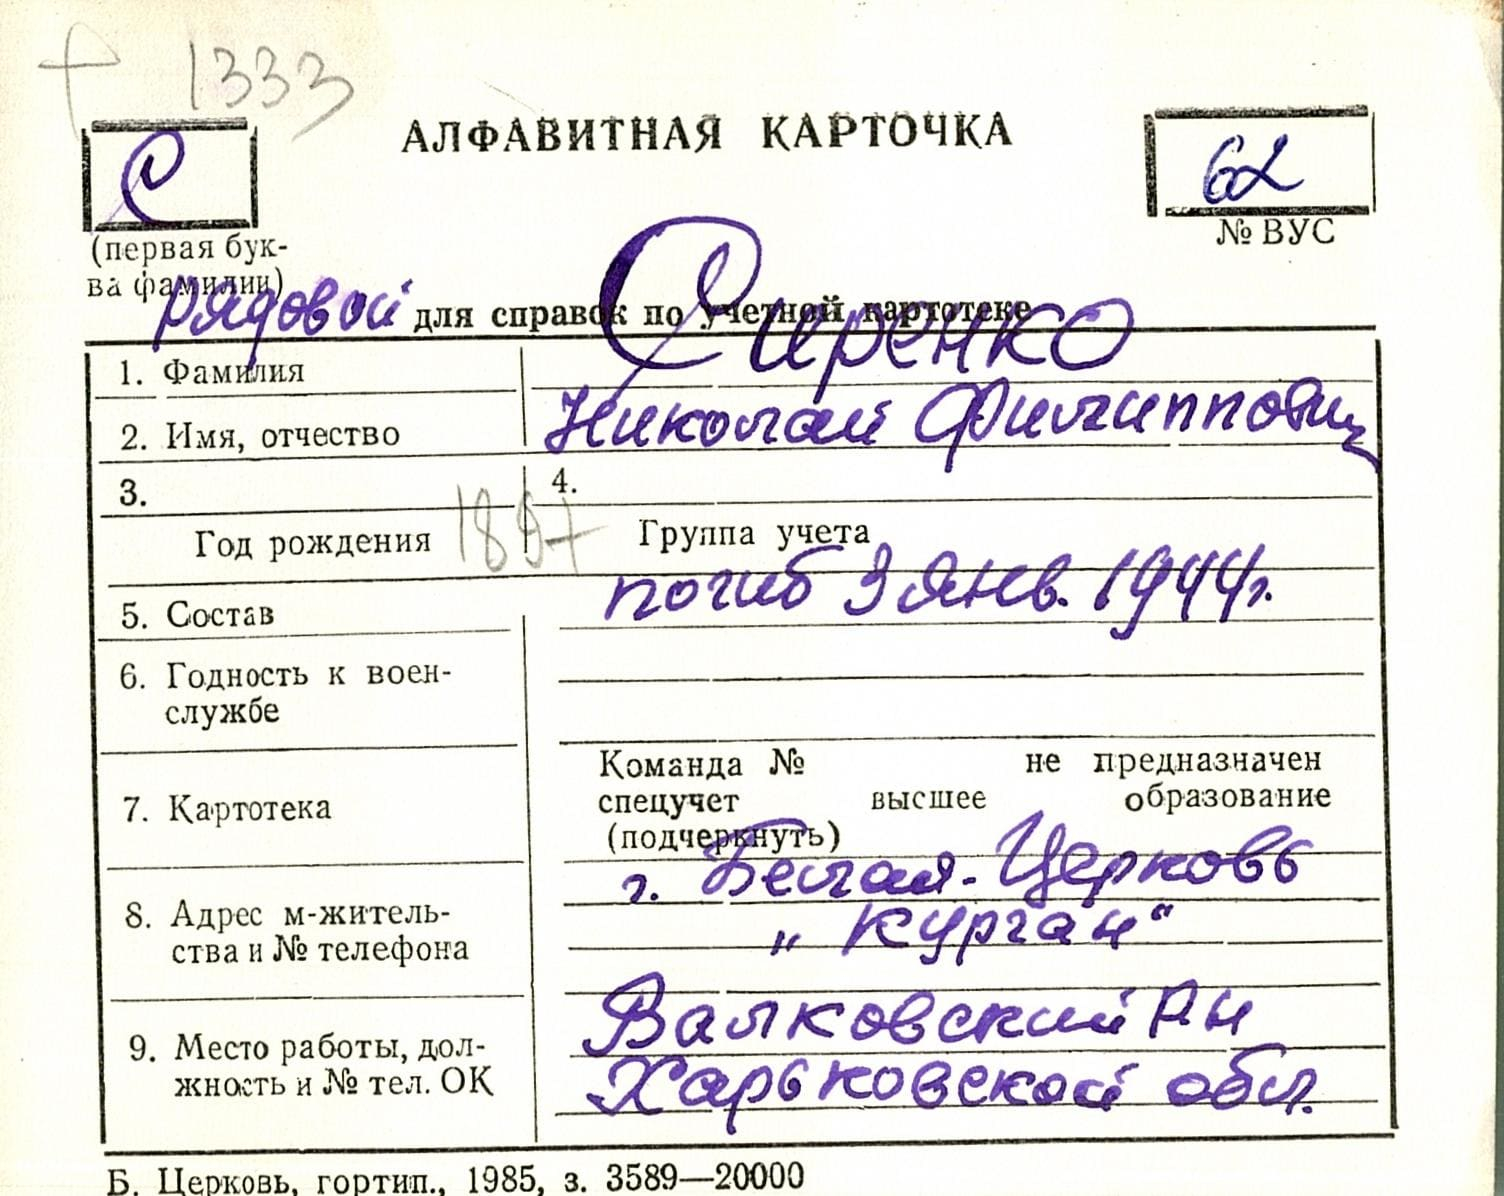 1333
АЛФАВИТНАЯ КАРТОЧКА
С
62
(первая бук-
ва фамилии)
№ ВУС
рядовой для справок по учетной картотеке
1. Фамилия Сиренко
2. Имя, отчество Николай Филиппович
3. 4.
Год рождения 1897 Группа учета
5. Состав погиб 3 янв. 1944г.
6. Годность к воен-
службе
Команда № не предназначен
7. Картотека спецучет высшее образование
(подчеркнуть)
г. Белая-Церковь
8. Адрес м-житель- „Курган“
ства и № телефона
Валковский Рн
9. Место работы, дол-
жность и № тел. ОК Харьковской обл.
Б. Церковь, гортип., 1985, з. 3589—20000